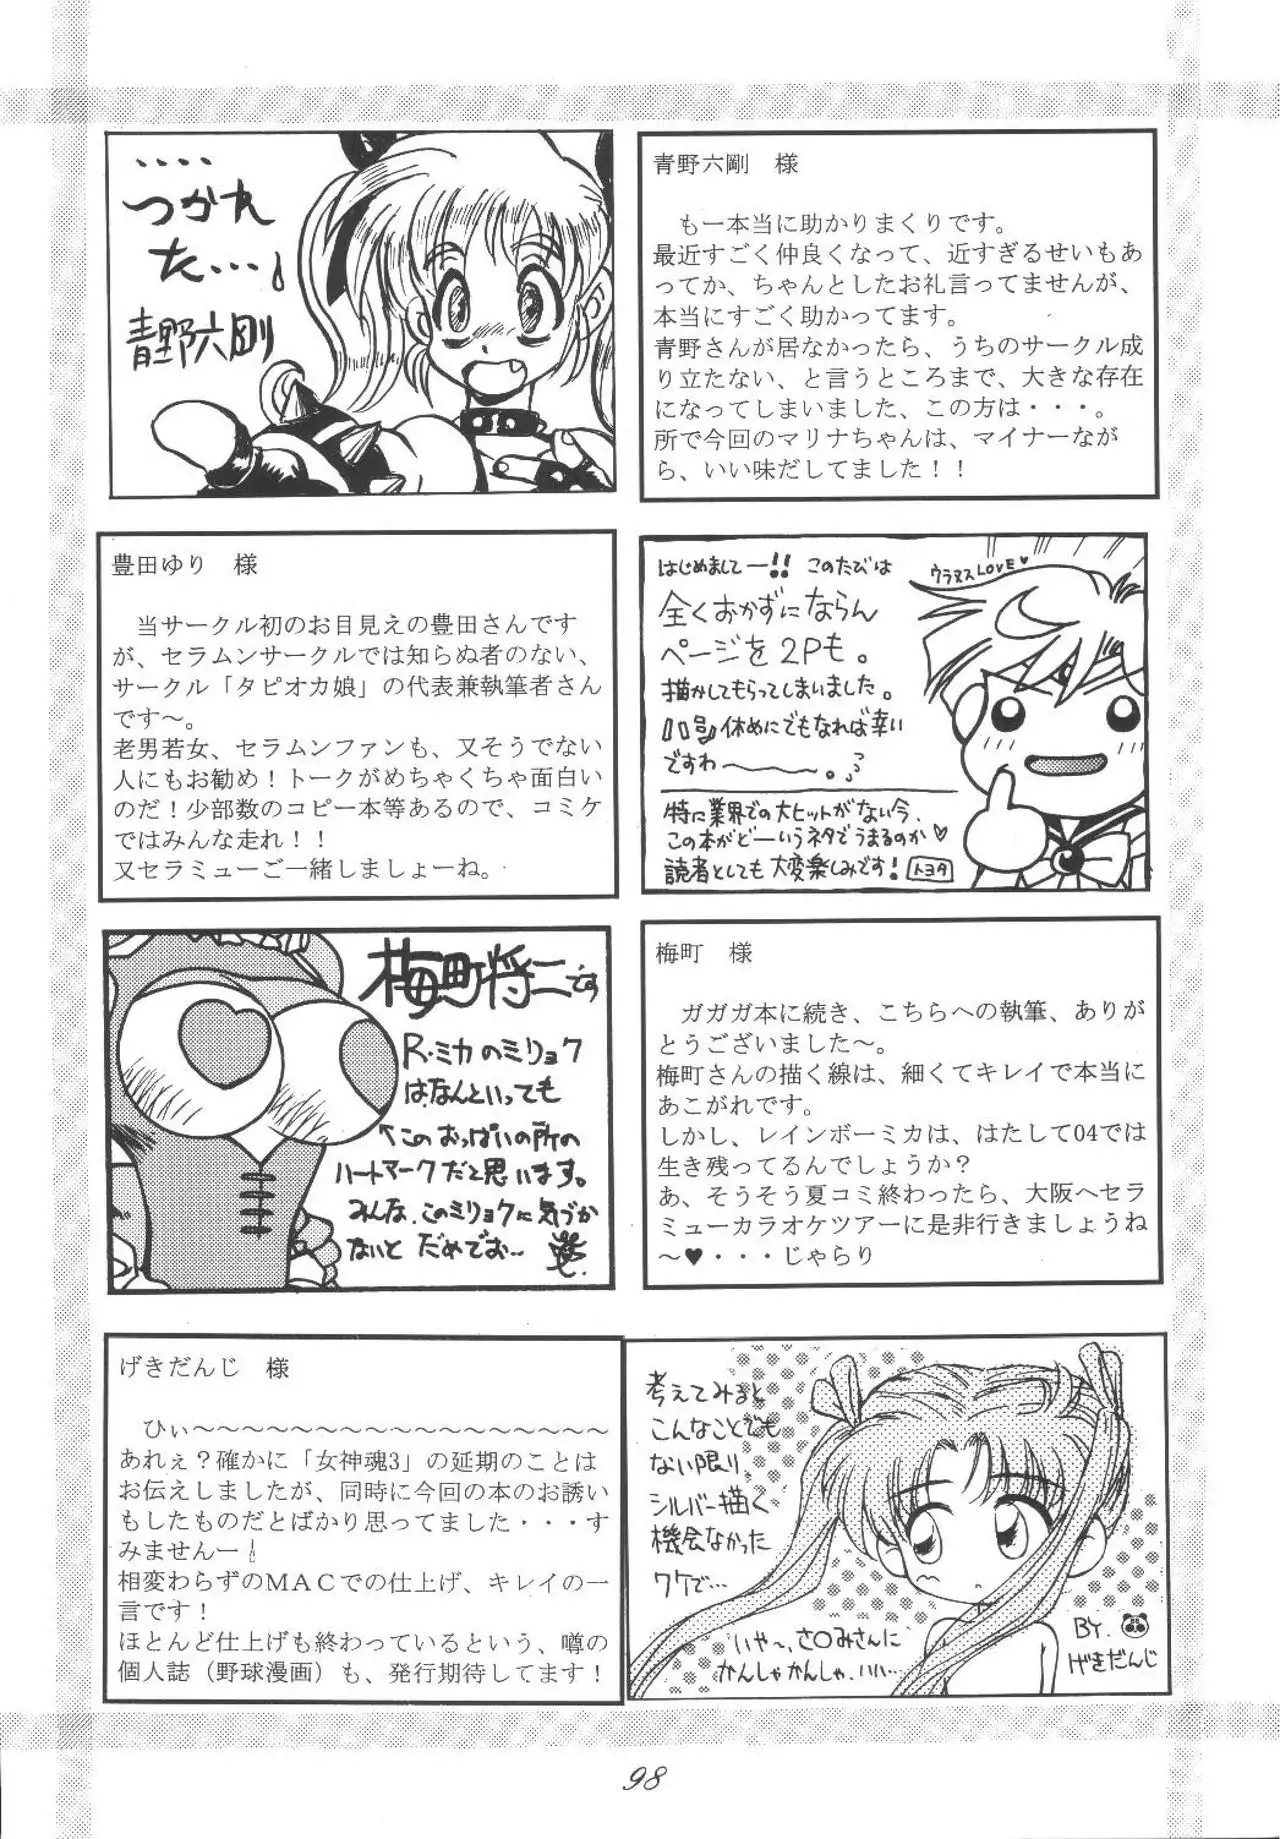 ・・・・
つかれ
た・・・
青野六剛
青野六剛　様
も一本当に助かりまくりです。
最近すごく仲良くなって、近すぎるせいもあ
ってか、ちゃんとしたお礼言ってませんが、
本当にすごく助かってます。
青野さんが居なかったら、うちのサークル成
り立たない、と言うところまで、大きな存在
になってしまいました、この方は・・・。
所で今回のマリナちゃんは、マイナーなが
ら、いい味だしてました！！
豊田ゆり　様
当サークル初のお目見えの豊田さんです
が、セラムンサークルでは知らぬ者のない、
サークル「タピオカ娘」の代表兼執筆者さん
です～。
老男若女、セラムンファンも、又そうでない
人にもお勧め！トークがめちゃくちゃ面白い
のだ！少部数のコピー本等あるので、コミケ
ではみんな走れ！！
又セラミューご一緒しましょーね。
はじめましてー!! このたびは
全くおかずにならん
ページを2Pも。
描かしてもらってしまいました。
箸休めにでもなれば幸い
ですわ～～～。
ウラヌスLOVE♥
特に業界での大ヒットがない今、
この本がどーいうネタでうまるのか♥
読者としても大変楽しみです！ トヨタ
梅町将二です
R・ミカのミリョク
は、なんといっても
←このおっぱいの所の
ハートマークだと思います。
みんな、このミリョクに気づか
ないと だめでお…
梅町　様
ガガガ本に続き、こちらへの執筆、ありが
とうございました～。
梅町さんの描く線は、細くてキレイで本当に
あこがれです。
しかし、レインボーミカは、はたして04では
生き残ってるんでしょうか？
あ、そうそう夏コミ終わったら、大阪へセラ
ミューカラオケツアーに是非行きましょうね
～♥・・・じゃらり
げきだんじ　様
ひぃ～～～～～～～～～～～～～～～～～
あれぇ？確かに「女神魂3」の延期のことは
お伝えしましたが、同時に今回の本のお誘い
もしたものだとばかり思ってました・・・す
みませんー
相変わらずのMACでの仕上げ、キレイの一
言です！
ほとんど仕上げも終わっているという、噂の
個人誌（野球漫画）も、発行期待してます！
考えてみると
こんなことでも
ない限り、
シルバー描く
機会なかった
ワケで…
いや～、さ○みさんに
かんしゃかんしゃ、いい…
BY.
げきだんじ
98